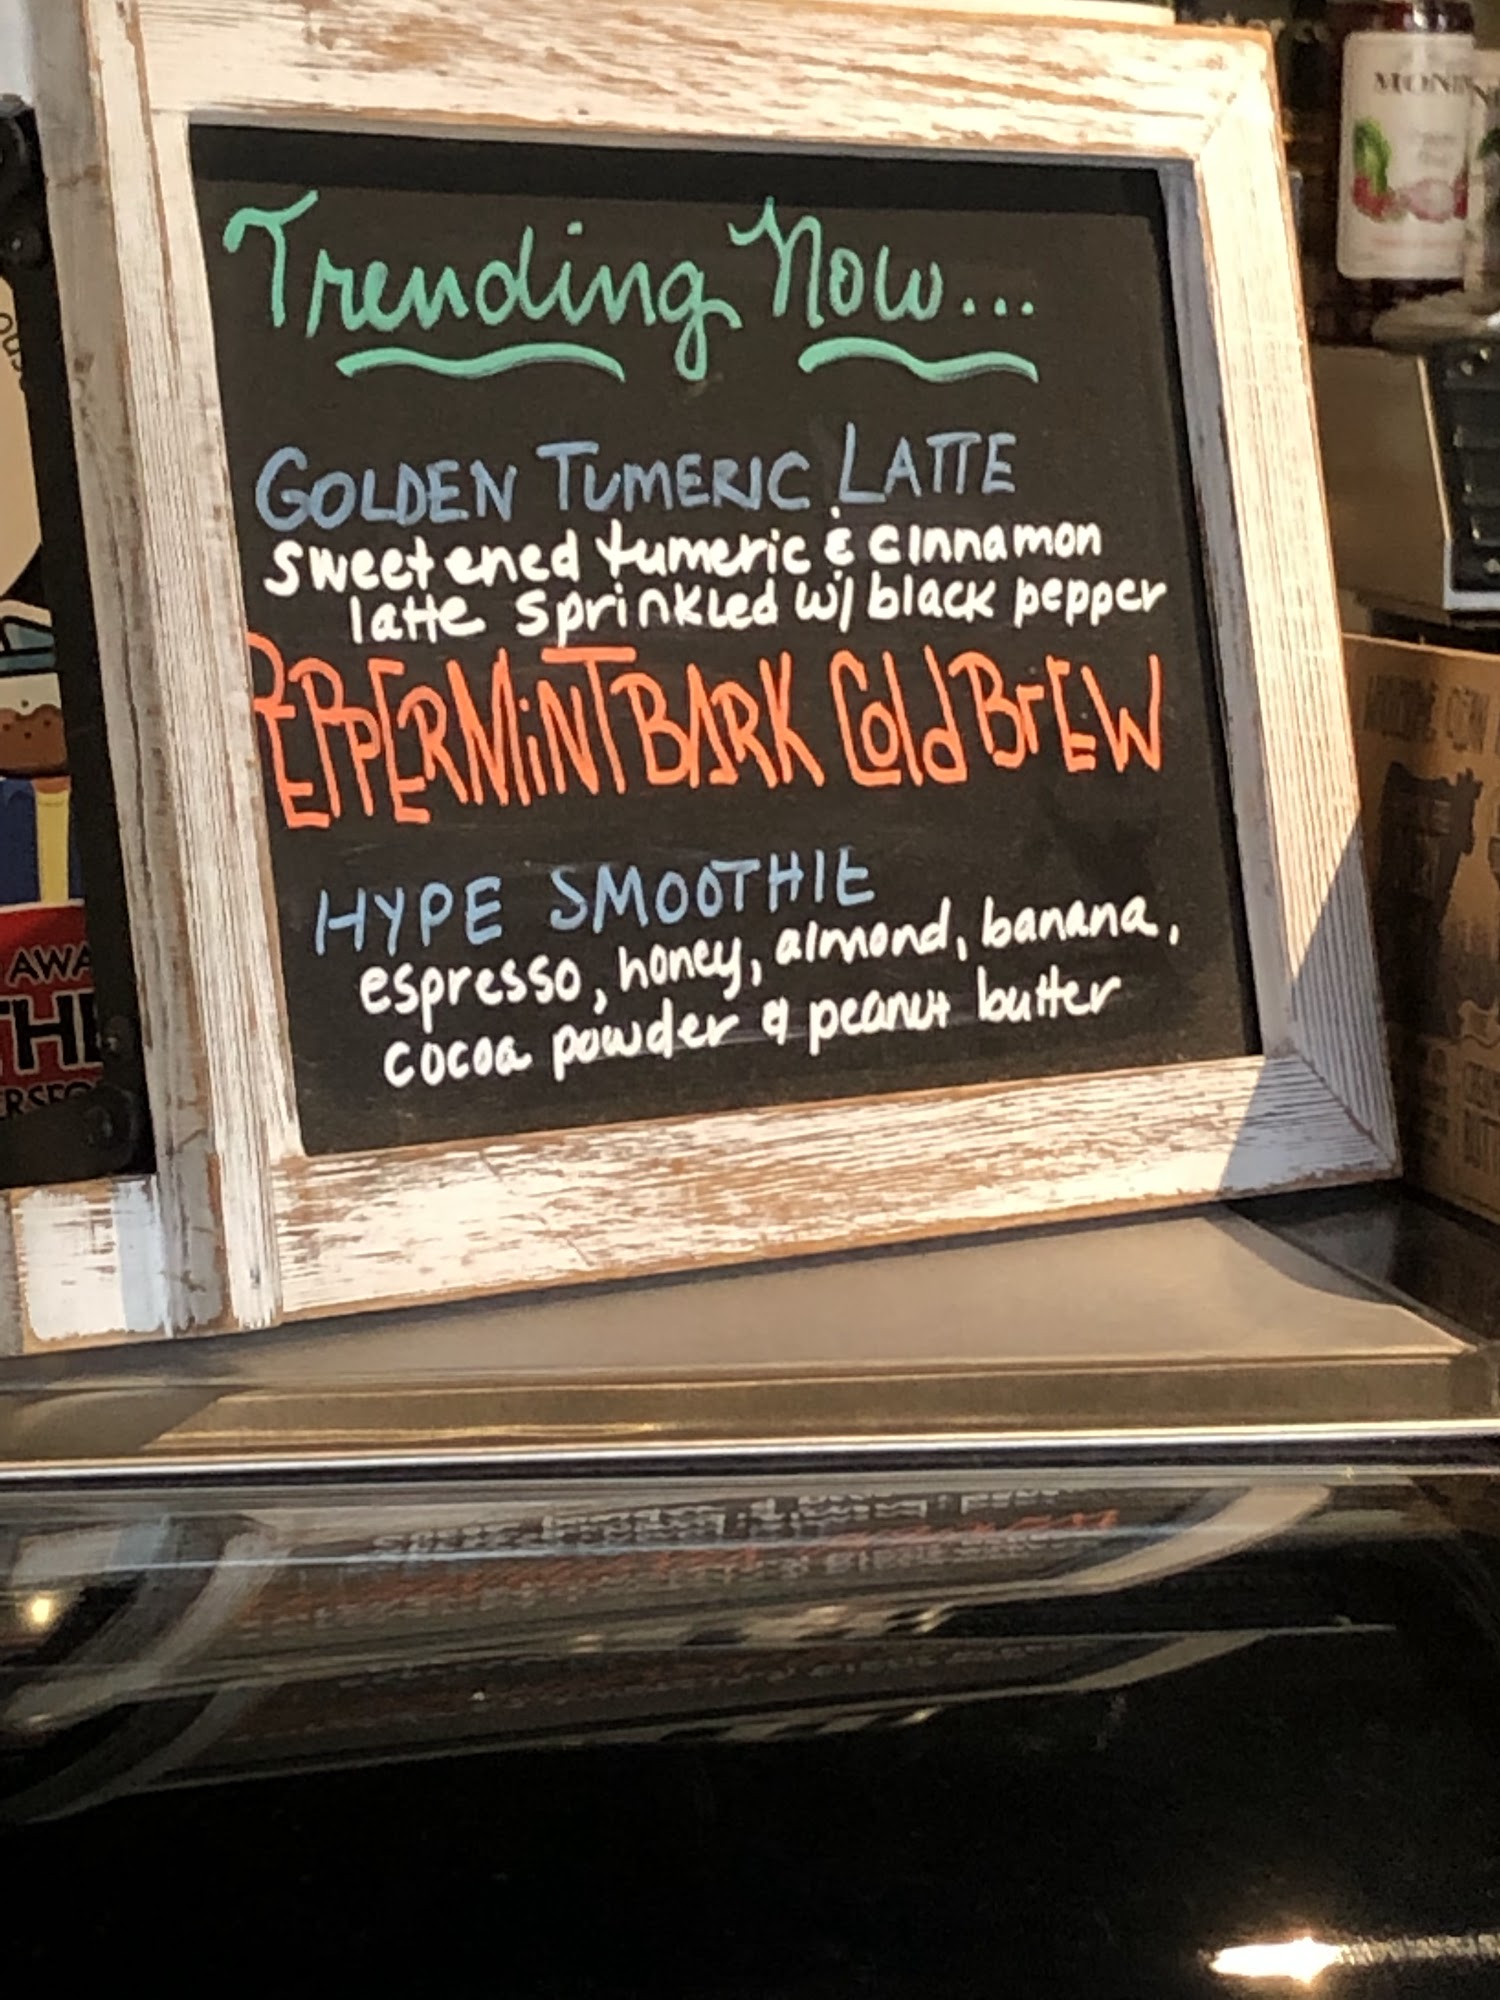 Trending Now...
GOLDEN TUMERIC LATTE
sweetened tumeric & cinnamon
latte sprinkled w/ black pepper
PEPPERMiNT BARK Cold BrEW
HYPE SMOOTHIE
espresso, honey, almond, banana,
cocoa powder & peanut butter
MONIN
AWA
THE